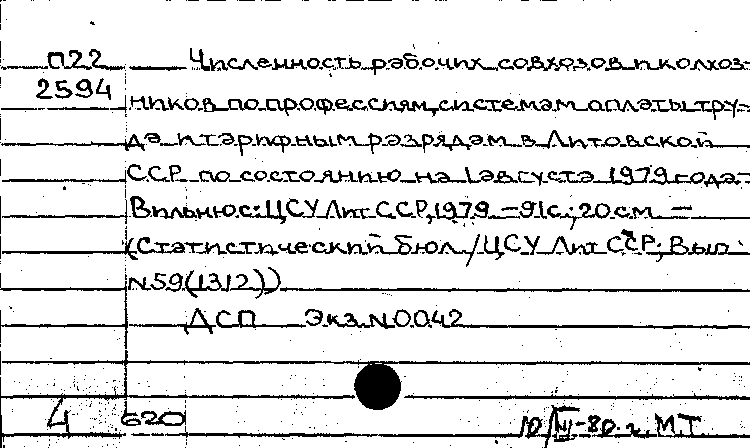 П22 Численность рабочих совхозов и колхоз-
2594
ников по профессиям, системам оплаты тру-
да и тарифным разрядам в Литовской
ССР по состоянию на 1 августа 1979 года.-
Вильнюс: ЦСУ Лит ССР, 1979. - 91 с.; 20 см. -
(Статистический бюл. / ЦСУ Лит ССР; Вып.
N59(1312))
ДСП Экз. N0042
4 620 10/VII-80.г. М.Т